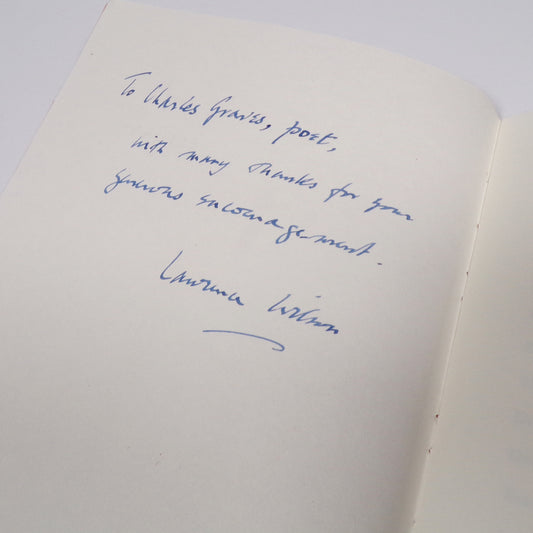 To Charles Graves, poet,
with many thanks for your
generous encouragement.
Laurence Wilson